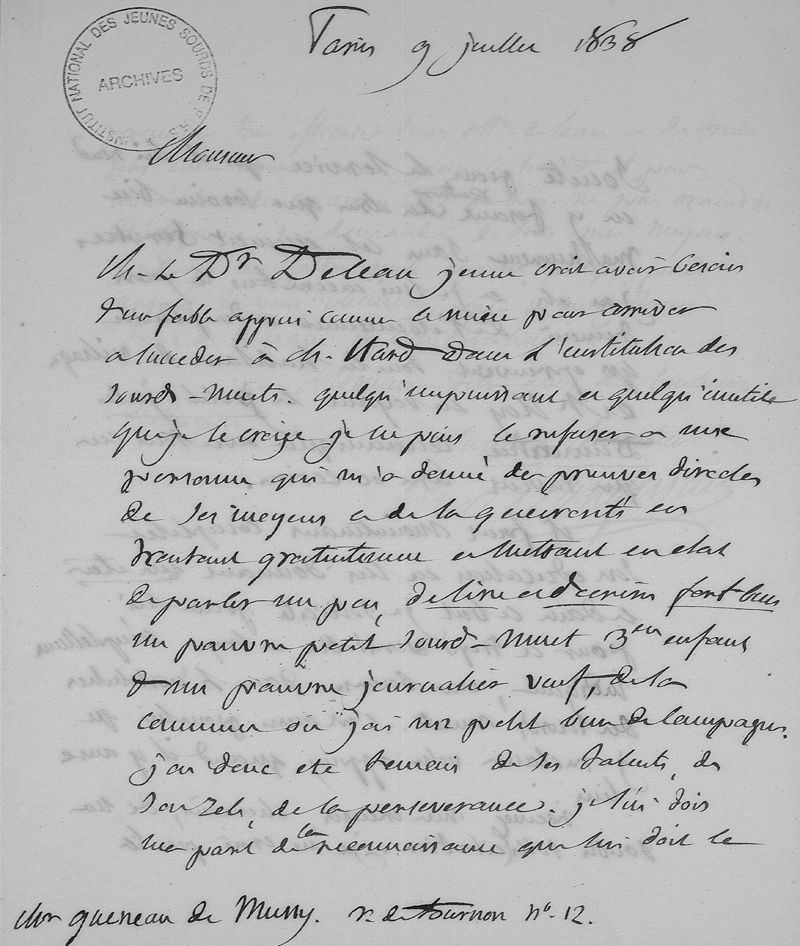 INSTITUT NATIONAL DES JEUNES SOURDS DE PARIS
ARCHIVES
Paris 9 juillet 1838
Monsieur
M. le Dr Deleau jeune croit avoir besoin
d'un faible appui comme le mien pour arriver
a succeder à M. Itard dans l'institution des
sourds-muets. quelqu'impuissant et quelqu'inutile
que je le croye je ne puis le refuser a une
personne qui m'a donné des preuves directes
de ses moyens et de sa generosité en
traitant gratuitement et mettant en etat
de parler un peu, de lire et d'ecrire fort bien
un pauvre petit sourd-muet 3eme enfant
d'un pauvre journalier veuf, de la
commune où j'ai un petit bien de campagne.
j'ai donc eté temoin de ses talents, de
son zele, de sa perseverance. je lui dois
ma part de la reconnaissance que lui doit le
Mr gueneau de Mussy. r. de tournon no. 12.